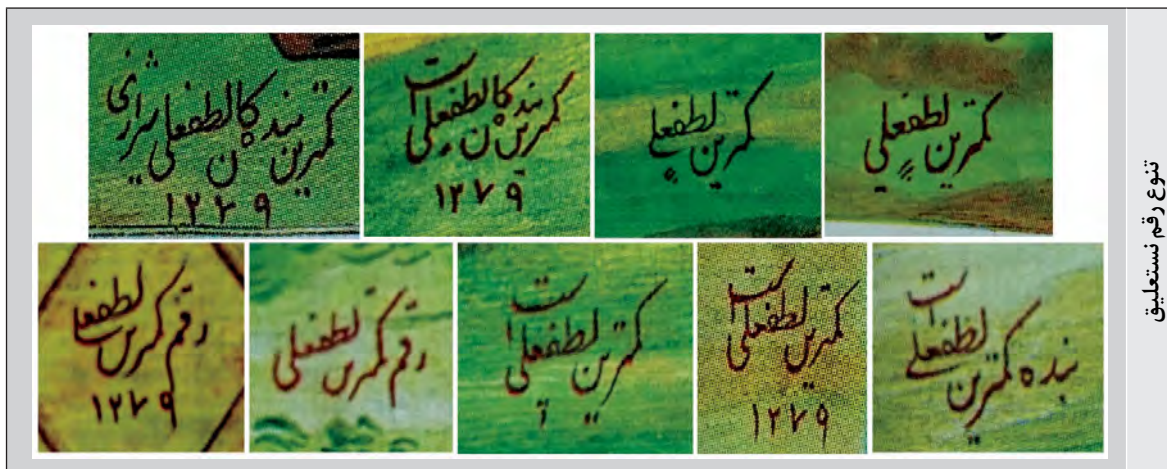 تنوع رقم نستعلیق
کمترین لطفعلی
کمترین لطفعلی
کمترین بندگان لطفعلی است
۱۲۷۹
کمترین بندگان لطفعلی شیرازی
۱۲۷۹
بنده کمترین لطفعلی است
کمترین لطفعلی است
۱۲۷۹
کمترین لطفعلی است
رقم کمترین لطفعلی
رقم کمترین لطفعلی
۱۲۷۹